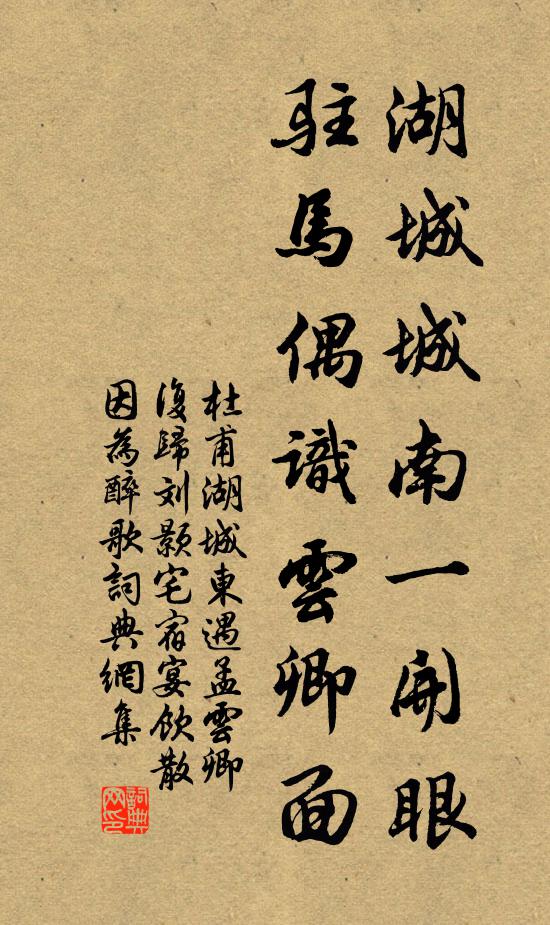 湖城城南一開眼
駐馬偶識雲卿面
杜甫湖城東遇孟雲卿
復歸刘顥宅宿宴飲散
因為醉歌詞典網集
詞典
网印